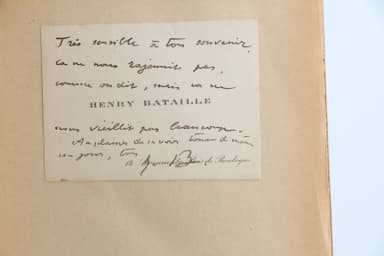 Très sensible à ton souvenir.
ça ne nous rajeunit pas,
comme on dit, mais ça ne
HENRY BATAILLE
nous vieillit pas beaucoup.
Au plaisir de revoir
ces jours, ton
de Boulogne